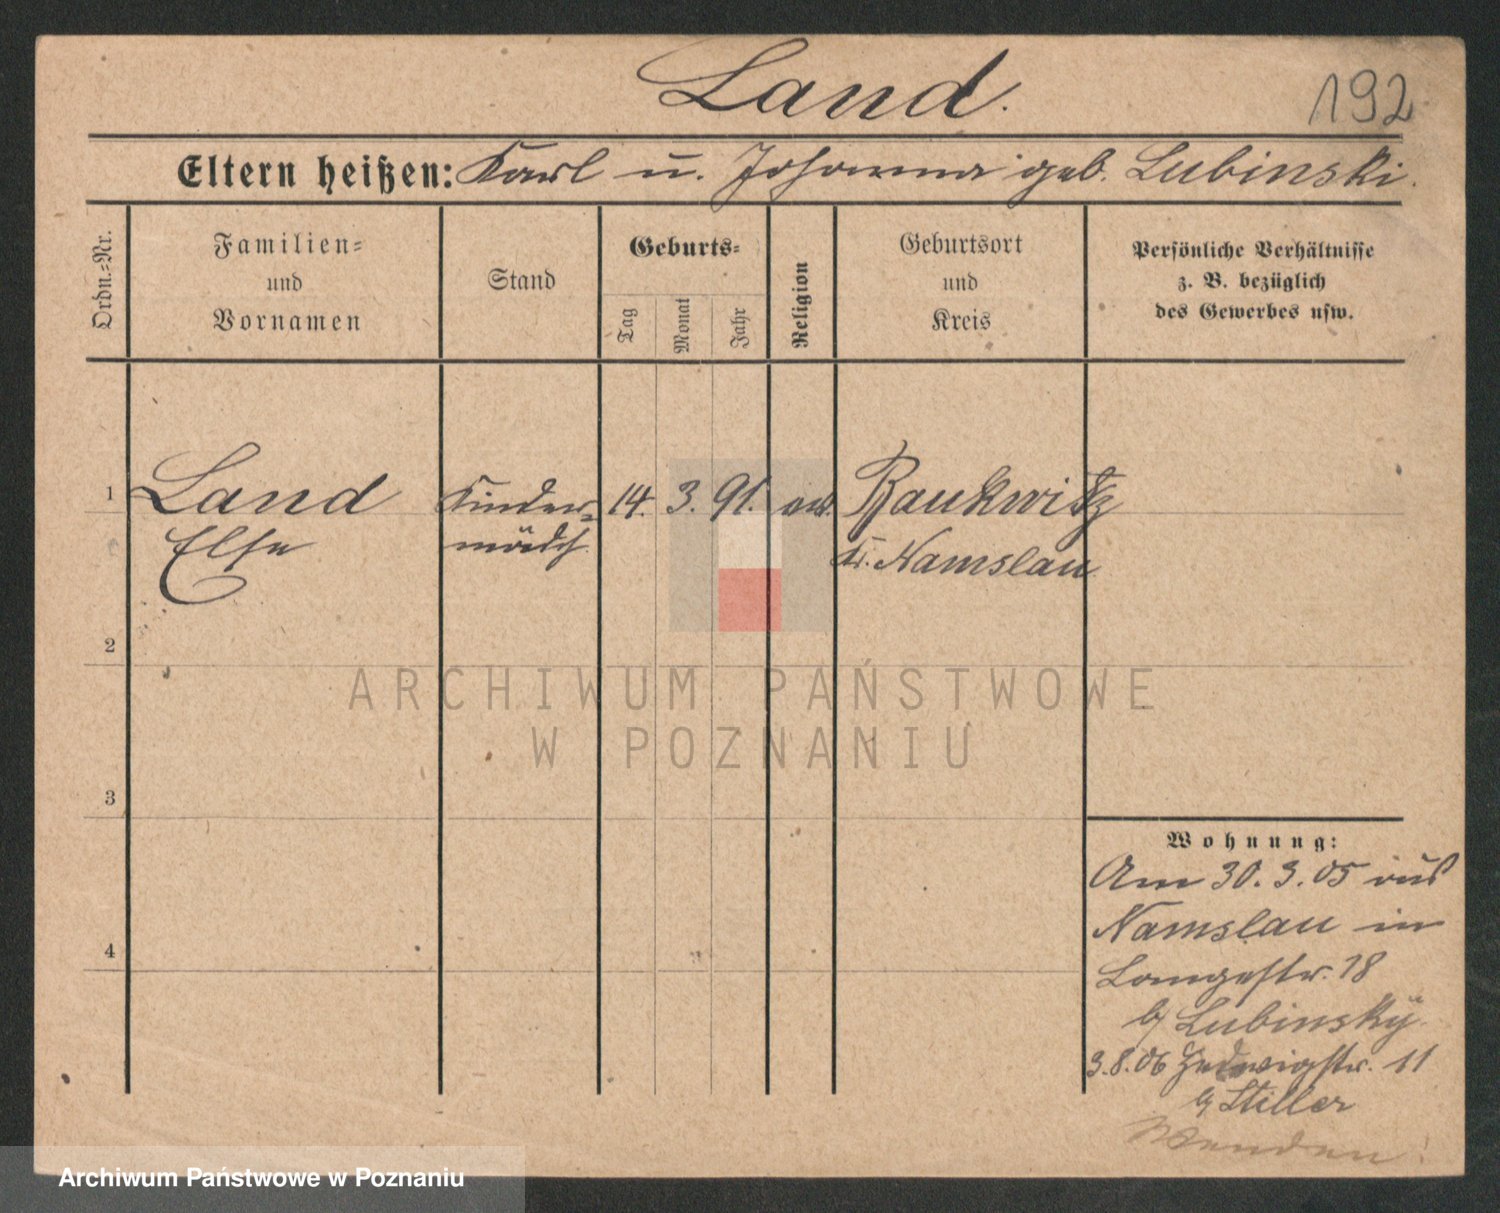 Land.
192
Eltern heißen: Karl u. Johanna geb. Lubinski.
Ordn.=Nr.
Familien=
und
Vornamen
Stand
Geburts=
Tag
Monat
Jahr
Religion
Geburtsort
und
Kreis
Persönliche Verhältnisse
z. B. bezüglich
des Gewerbes usw.
1 Land Kinder= 14. 3. 91. ev. Bankwitz
Else mädch. Kr. Namslau
2
3
4
Wohnung:
Am 30. 3. 05 aus
Namslau in
Langestr. 18
b/ Lubinsky
3.8.06 Hedwigstr. 11
b/ Stiller
Wenden!
ARCHIWUM PAŃSTWOWE
W POZNANIU
Archiwum Państwowe w Poznaniu